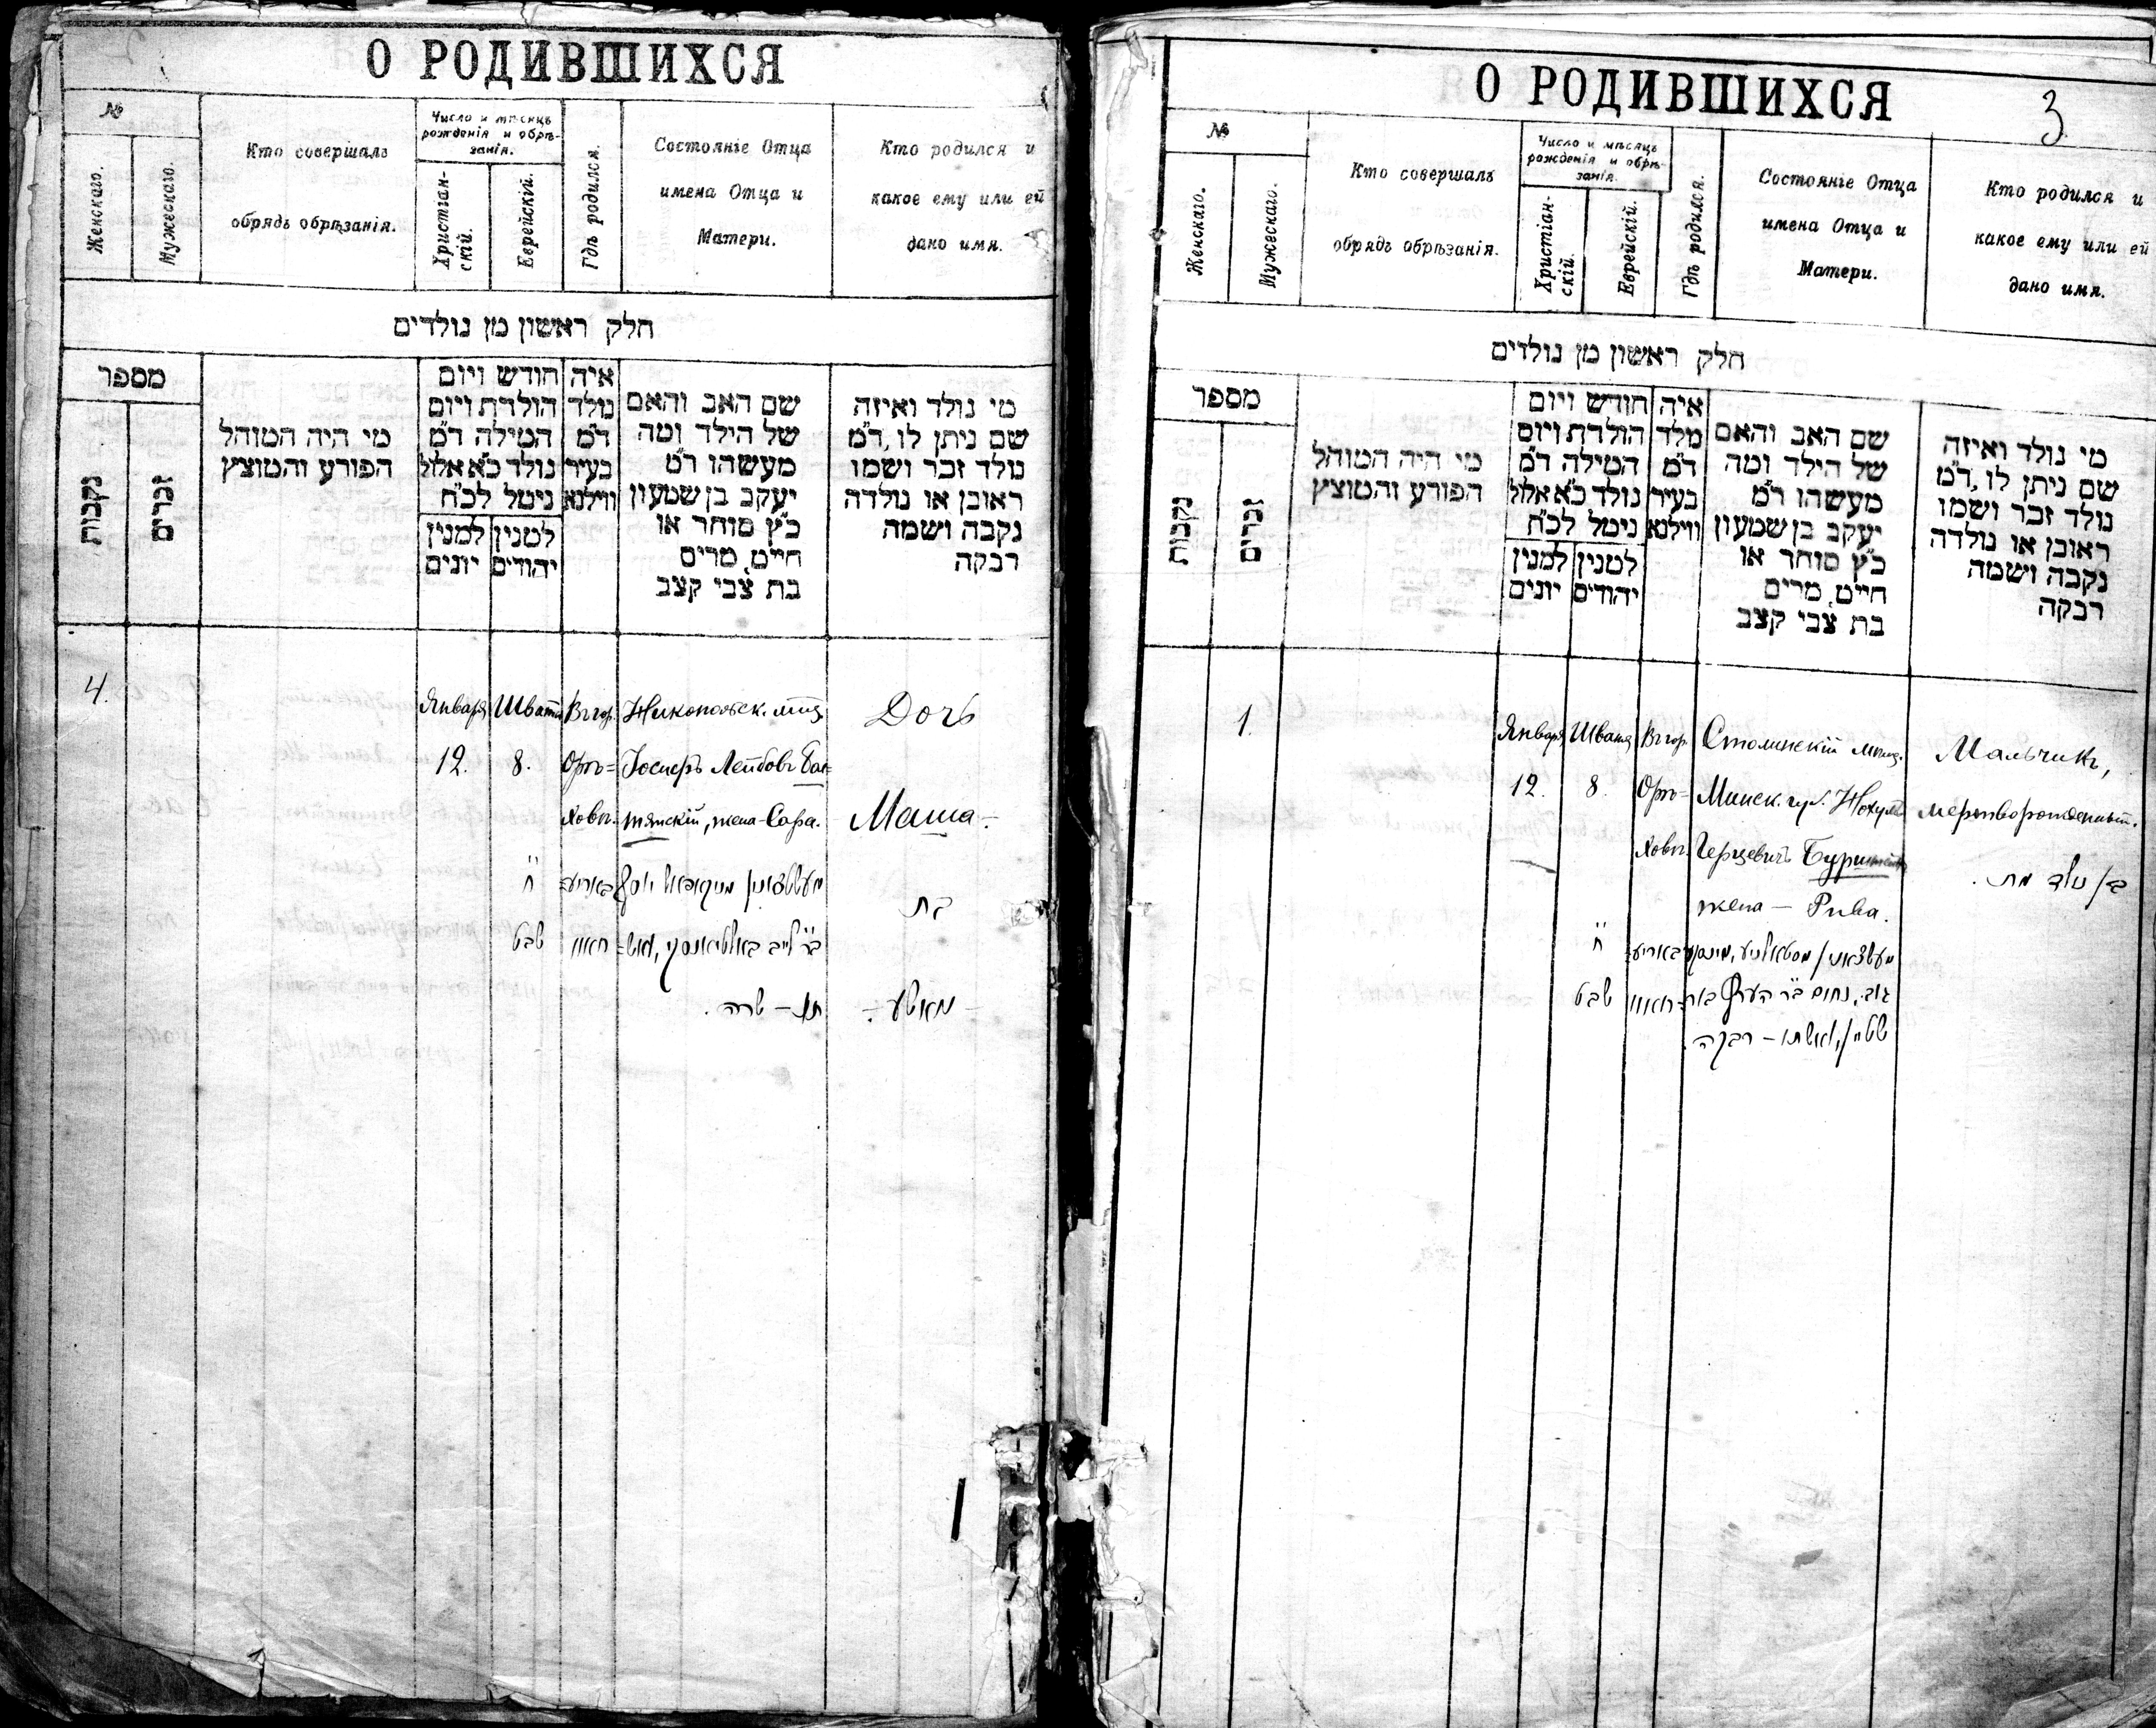 О РОДИВШИХСЯ
№
Женскаго.
Мужескаго.
Кто совершалъ
обрядъ обрѣзанія.
Число и мѣсяцъ
рожденія и обрѣ-
занія.
Христіан-
скій.
Еврейскій.
Гдѣ родился.
Состояніе Отца
имена Отца и
Матери.
Кто родился и
какое ему или ей
дано имя.
חלק ראשון מן נולדים
מספר
נקבות
זכרים
מי היה המוהל
הפורע והמוצץ
חודש ויום
הולדת ויום
המילה ד"מ
נולד כ"א אלול
נימל לכ"ח
למנין
יונים
למנין
יהודים
איה
נולד
ד"מ
בעיר
ווילנא
שם האב והאם
של הילד ומה
מעשהו ד"מ
יעקב בן שמעון
כ"ץ סוחר או
חייט, מרים
בת צבי קצב
מי נולד ואיזה
שם ניתן לו, ד"מ
נולד זכר ושמו
ראובן או נולדה
נקבה ושמה
רבקה
4.
Января
12.
Швата
8.
ח
שבט
Въ гор.
Орѣ=
ховѣ.
Никопольск. мѣщ.
Іосифъ Лейбовъ Бал=
тянскій, жена - Сара.
תו – שרה.
Дочь
Маша.
בת
– מאשע –
О РОДИВШИХСЯ
3
№
Женскаго.
Мужескаго.
Кто совершалъ
обрядъ обрѣзанія.
Число и мѣсяцъ
рожденія и обрѣ-
занія.
Христіан-
скій.
Еврейскій.
Гдѣ родился.
Состояніе Отца
имена Отца и
Матери.
Кто родился и
какое ему или ей
дано имя.
חלק ראשון מן נולדים
מספר
נקבות
זכרים
מי היה המוהל
הפורע והמוצץ
חודש ויום
הולדת ויום
המילה ד"מ
נולד כ"א אלול
נימל לכ"ח
למנין
יונים
למנין
יהודים
איה
נולד
ד"מ
בעיר
ווילנא
שם האב והאם
של הילד ומה
מעשהו ד"מ
יעקב בן שמעון
כ"ץ סוחר או
חייט, מרים
בת צבי קצב
מי נולד ואיזה
שם ניתן לו, ד"מ
נולד זכר ושמו
ראובן או נולדה
נקבה ושמה
רבקה
1.
Января
12.
Швата
8.
ח
שבט
Въ гор.
Орѣ=
ховѣ.
Столинскій мѣщ.
Минск. губ.
Герцевичъ
жена – Рива.
ואשתו – רבקה
Мальчикъ,
мертворожденный.
בן נולד מת.